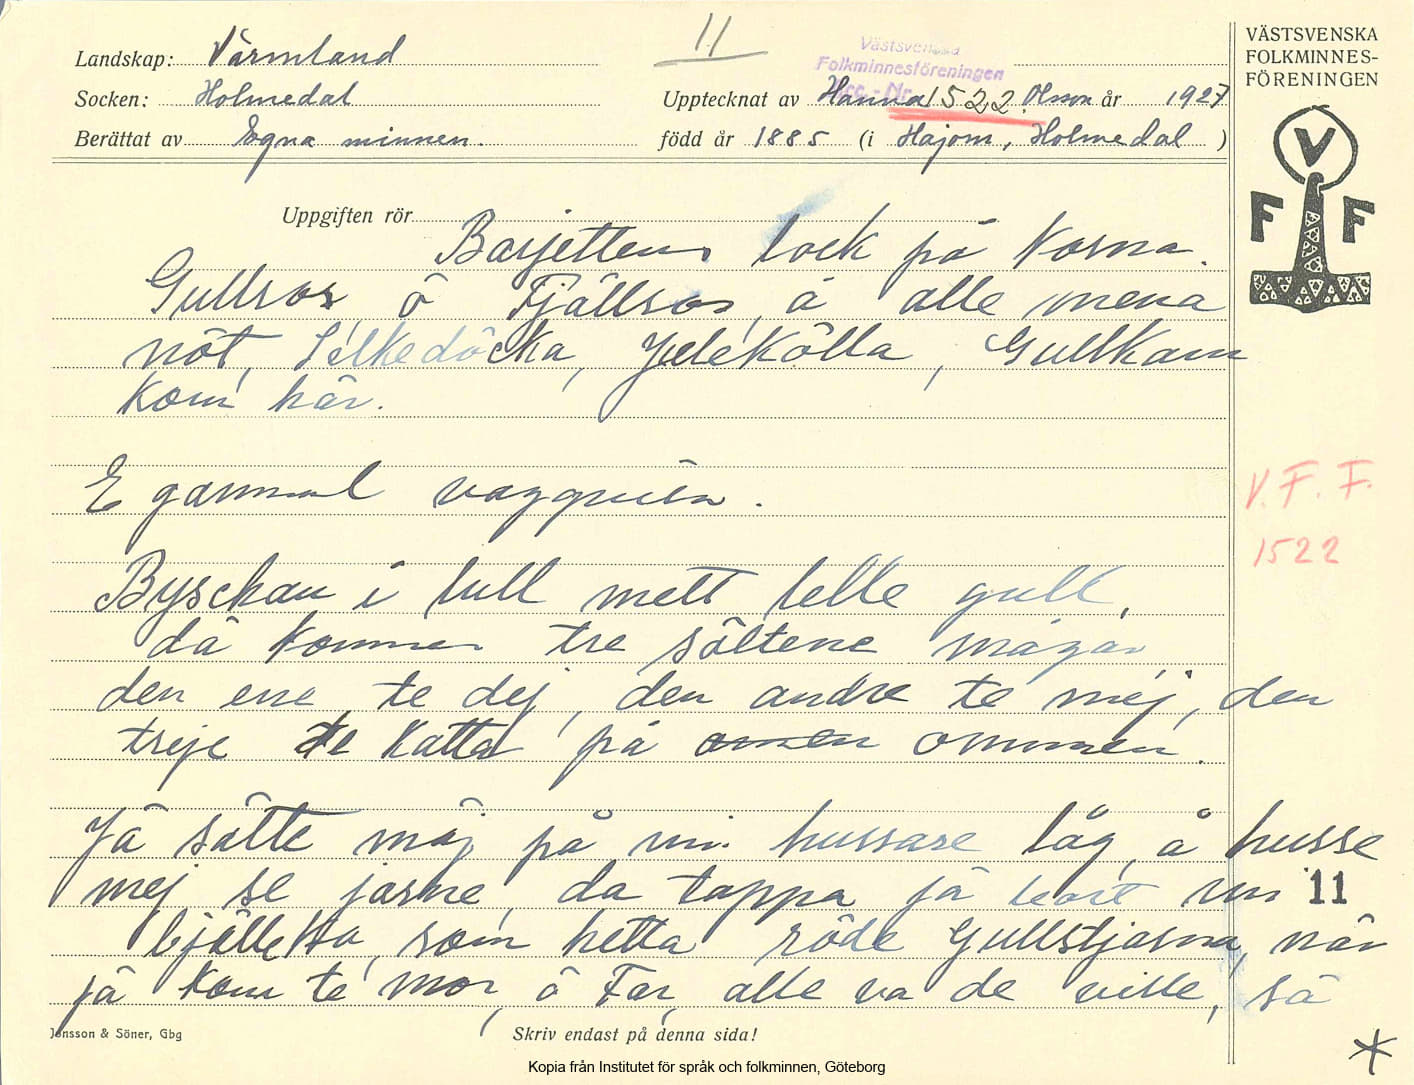 11
Västsvenska
Folkminnesföreningen
Acc.-Nr. 1522.
VÄSTSVENSKA
FOLKMINNES-
FÖRENINGEN
Landskap: Värmland
Socken: Holmedal
Upptecknat av Hanna Olsson år 1927
Berättat av Egna minnen.
född år 1885 (i Hajom, Holmedal )
V
F F
Uppgiften rör
Barjettens lock på korna.
Gullros ô Fjällros, å alle mena
nöt, Silkedöcka, Julekölla, Gullkam
kom här.
E gammal vaggvisa.
V. F. F.
1522
Byschan i lull mett lelle gull,
då kommer tre sältene mågar
den ene te dej, den andre te mej, den
treje te Katta på omen ommen.
Jä sätte mäj på min hussare låg, å husse
mej se jasne, da tappa jä bort min
11
bjällko, som hetta röde Gullstjasna, när
jä kom te mor, ô Far, alle va de ville, så
Jonsson & Söner, Gbg
Skriv endast på denna sida!
Kopia från Institutet för språk och folkminnen, Göteborg